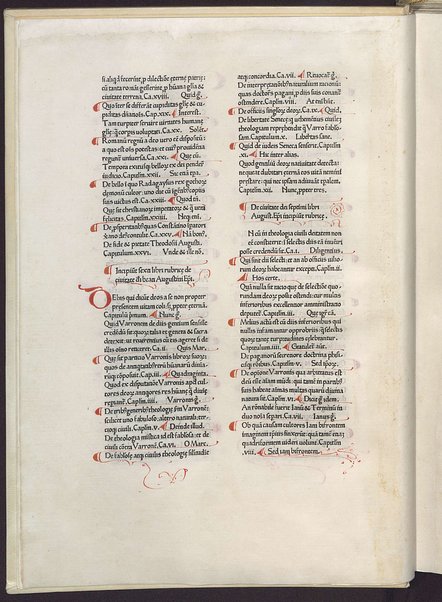 si aliqd fecerint, p dilectiõe eternę patrię:
cũ tanta romãi gesserint, p hũana gl̃ia &
ciuitate terrena. Ca. xviii. Quid
Quo inter se differãt cupiditas glię & cu-
piditas dñationis. Cap. xix. Interest.
Tam turpiter seruire uirtutes humanę
glię, q̃ corpis uoluptati. Ca. xx. Solẽt
Romanũ regnũ a deo uero dispositũ:
a quo est ois potestas et cui' prouidẽtia
regunt' uniuersa. Ca. xxi. Que cũ.
Tempora exitusq̃ bellorꝝ ex dei pendere
iudicio. Capitulm̃. xxii. Sic etiã tpa.
De bello i quo Radagaysus rex gothorꝝ
demonũ cultor: uno die cũ ingẽtibus co-
piis uictus est. Ca. xxiii. Quod tñ.
Que sit christianorꝝ impatorꝝ & q̃ uera
felicitas. Capitlm. xxiiii. Neq̃ eni.
De pspitatibus quas Cõstãtino ipatori
x̃iano de' cõtulit. Ca. xxv. Nã bon'.
De fide & pietate Theodosii Augusti.
Capitulum. xxvi. Unde & ille nõ.
Incipiũt sexti libri rubricę de
ciuitate dei beati Augustini Epi.
De his qui dicũt deos a se non propter
presentem uitam coli: sꝫ ppter eternã.
Capitulũ primum. Nunc
Quid Varronem de diis gentium sensisse
credẽdũ sit: quorꝝ talia et genera & sacra
detexit: ut reuerenti' cũ eis ageret si de
illis oino reticeret. Ca. ii. Quis Mar.
Que sit partitio Varronis librorꝝ suorꝝ:
quos de antiqtatib' rerũ hũanarũ diuina-
rũq̃ cõposuit. Caplm. iii. Quadraginta.
Quod ex disputatiõe Varronis apd' cul-
tores deorꝝ antiquiores res hũanę q̃ diuinę
repiant'. Caplm. iiii. Varronis
De trib' generib' theologię s̃m Varronẽ:
scilicet uno fabuloso: altero naturali, ter-
tioq̃ ciuili. Caplm. v. Deinde illud.
De theologia mistica id est fabulosa et de
ciuili cõtra Varronẽ. Ca. vi. O Marc.
De fabulose atq̃ ciuilis theologię similitudie
atq̃ concordia. Ca. vii. Riuocat'
De interpretatiõib' naturaliũ rationũ:
quas doctores pagani, p diis suis conant'
ostendere. Capitlm. viii. At eni hñt.
De officiis singlorꝝ deorꝝ. Ca. ix. Quid.
De libertate Senecę q̃ uehemẽtius ciuilẽ
theologiam reprehendit q̃ Varro fabulo-
sam. Capitulum. x. Libertas sane.
Quid de iudeis Seneca senserit. Capitlm.
xi. Hic inter alias.
Quod gentiliũ deorꝝ uanitate detecta:
nequeat dubitari eternã eos uitã nemini
prestare: qui nec ipsam adiuuãt tpalem.
Capitlm. xii. Nunc, ppter tres.
De ciuitate dei septimi libri
August. Epi incipiũt rubricę.
N cũ in theologia ciuili deitatem non
eẽ constiterit: i selectis diis eã inueniri
posse credendũ sit. Ca. i. Diligentius.
Qui sint dii selecti: et an ab officiis uilio-
rum deorꝝ habeantur excepti. Caplm. ii.
Hos certe.
Quã nulla sit ratio quę de selectiõe quo-
rundam deorꝝ posset ostendi: cum multis
inferioribus excellentior amministratio
deputet'. Capitlm. iii. Que igit' cã.
Melius actũ est cũ diis inferioribus qui
nullis infamantur opprobriis: q̃ selectis
quorꝝ tantę turpitudines celebrantur.
Capitulum. iiii. Gratulet' aut'.
De paganorũ secretiore doctrina phisi-
cisq̃ rõnibus. Capitlm. v. Sed ipsorꝝ.
De opinione Varronis qua arbitratus est
deũ esse aĩam mũdi: qui tamẽ in partib'
suis habeat aĩmas multas quarũ diuina
natura sit. Caplm. vi. Dicit idem.
An rõnabile fuerit Ianũ & Terminũ in
duo noĩa separi. Ca. vii. Ianus
Ob quã causam cultores Iani bifrontem
imaginem ipsius finxerint: quã tamẽ etiã
quadriformem uideri uolunt. Capitlm.
.viii. Sed iam bifrontem.